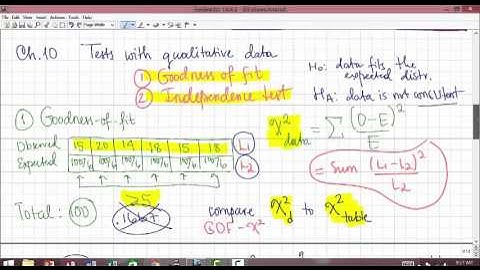 Ch.10 Tests with qualitative data
① Goodness of fit
② Independence test
H₀: data fits the expected distr.
H_A: data is not consistent
① Goodness-of-fit
Observed 15 20 14 18 15 18 L1
Expected 100/6 100/6 100/6 100/6 100/6 100/6 L2
≥5
Total: 100
.1667
χ²data = Σ (O-E)²/E
= sum (L1-L2)²/L2
compare χ²d to χ²table
GOF-χ²